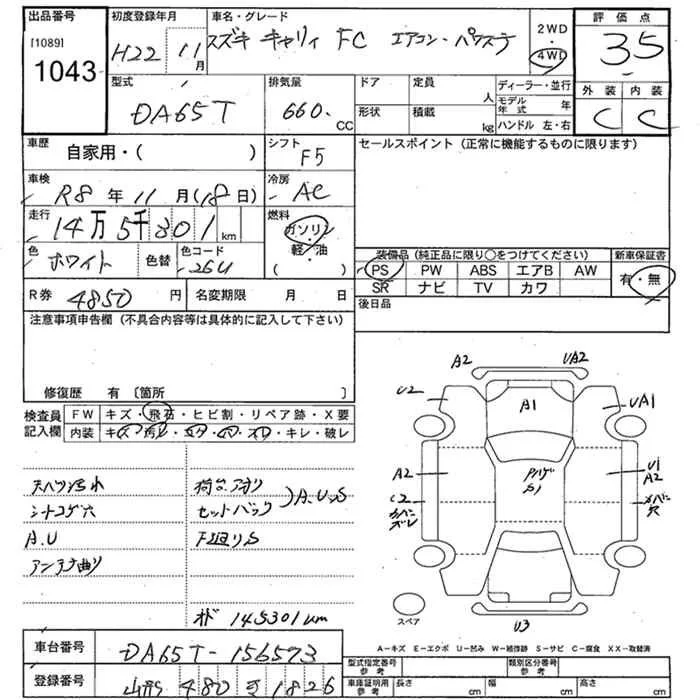 出品番号 初度登録年月 車名・グレード 2WD 評価点
[1089] 1043 H22 11月 スズキ キャリィ FC エアコン・パワステ 4WD 3.5
型式 排気量 ドア 定員 人 ディーラー・並行 外装 内装
DA65T 660. CC 形状 積載 kg モデル年式 年 C C
ハンドル 左・右
車歴 自家用・( ) シフト F5 セールスポイント (正常に機能するものに限ります)
車検 R8年11月(18日) 冷房 AC
走行 14万5千301km 燃料 ガソリン・軽・油 ( )
色 ホワイト 色替 色コード 26U
装備品 (純正品に限り○をつけてください) 新車保証書
PS PW ABS エアB AW 有・無
SR ナビ TV カワ
R券 4850円 名変期限 月 日 後日品
注意事項申告欄 (不具合内容等は具体的に記入して下さい)
修復歴 有 〔箇所 〕
検査員記入欄 FW キズ・飛石・ヒビ割・リペア跡・X要
内装 キズ・汚レ・コゲ・穴・スレ・キレ・破レ
天ハリ汚れ 荷台アオリ
シートコゲ穴 セットバック )A.U.S
A.U 下廻りS
アンテナ曲り
オド 145301km
A2 UA2
U2 UA1
A1
A2 U1
A2
C2
スペア
U3
A－キズ E－エクボ U－凹み W－補修跡 S－サビ C－腐食 XX－取替済
車台番号 DA65T-156573
登録番号 山形 480 1826
型式指定番号 参考 類別区分番号 参考
車庫証明用 参考 長さ cm 幅 cm 高さ cm